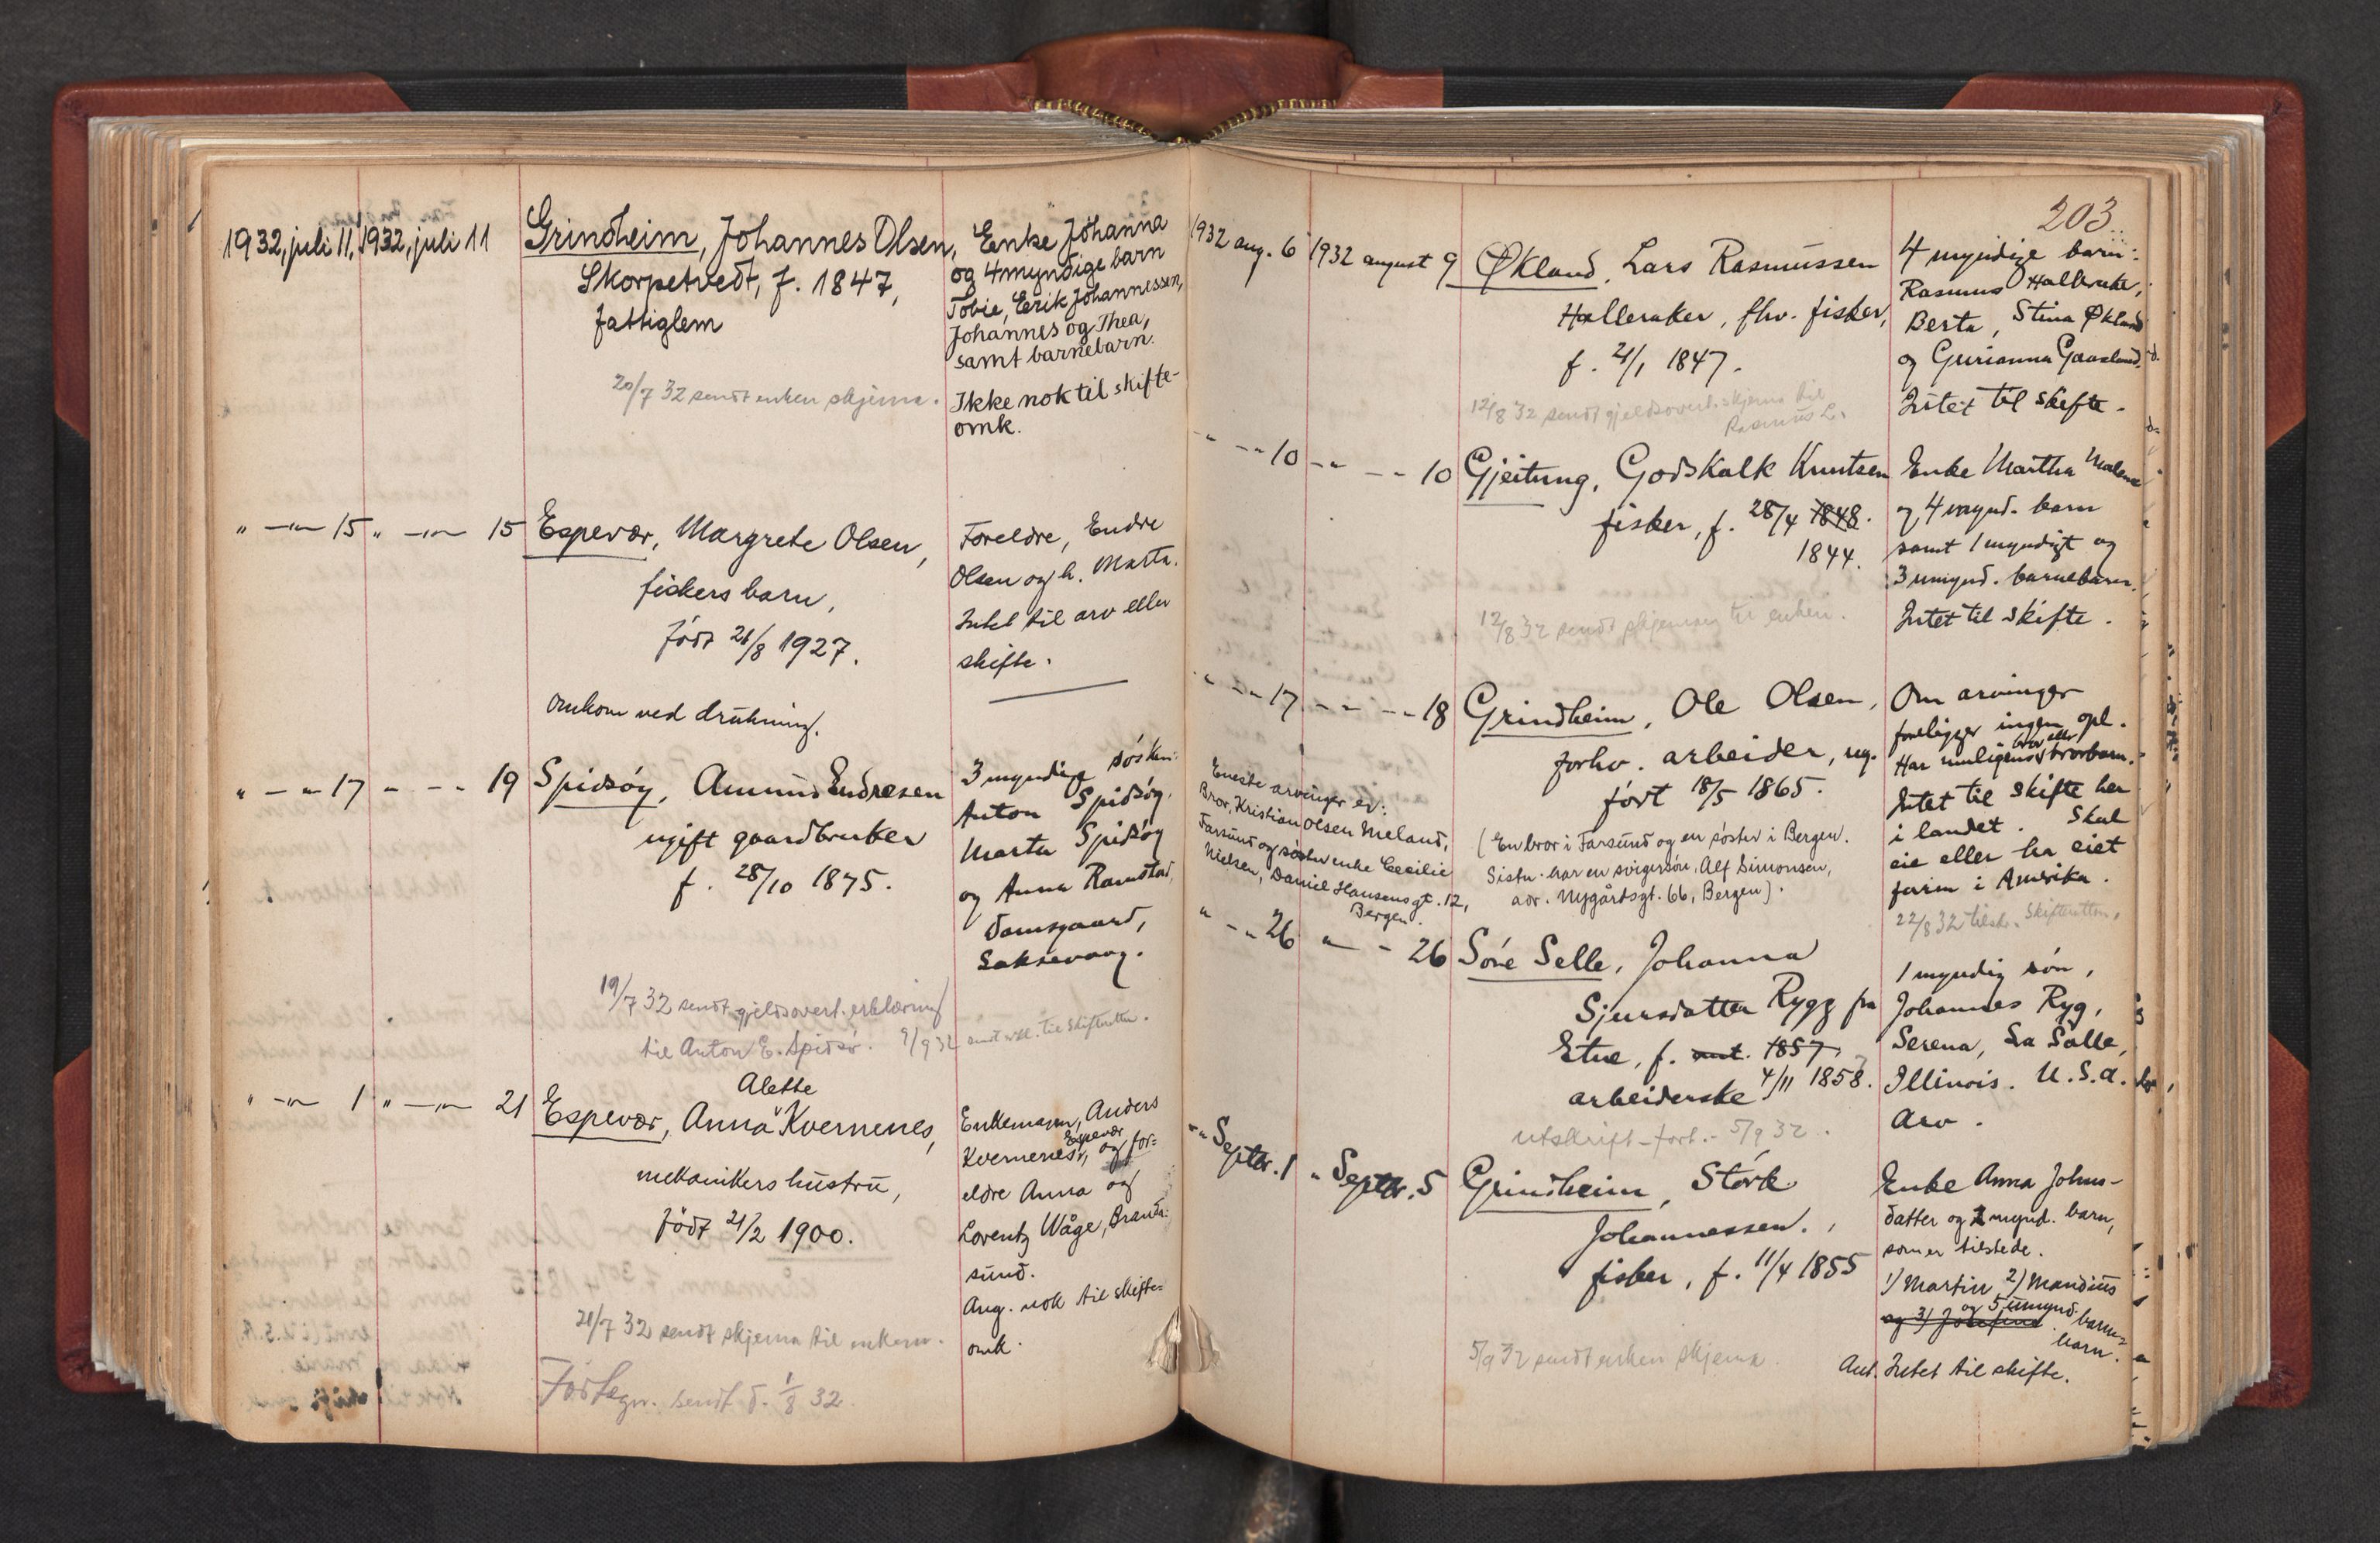 1932, juli 11, 1932, juli 11 Grindheim, Johannes Olsen,
Skorpetvedt, f. 1847,
fattiglem
20/7 32 sendt enken skjema.
Enke Johanna
og 4 myndige barn
Tobie, Erik Johannessen,
Johannes og Thea,
samt barnebarn.
Ikke nok til skifte-
omk.
" — " — 15 " — " — 15 Espevær, Margrete Olsen,
fiskers barn,
født 21/8 1927.
Omkom ved drukning.
Foreldre, Endre
Olsen og h. Marta.
Intet til arv eller
skifte.
" — " 17 " — - 19 Spidsøy, Amund Endresen
ugift gaardbruker
f. 28/10 1875.
19/7 32 sendt gjeldsovert. erklæring
til Anton E. Spidsø. 9/9 32 sendt erkl. til Skifteretten.
3 myndige søsken:
Anton Spidsøy,
Marta Spidsøy
og Anna Ramstad,
Damsgaard,
Laksevaag.
" — " — 1 " — " — 21 Espevær, Anna Kvernenes,
Alette
mekanikers hustru,
født 21/2 1900.
21/7 32 sendt skjema til enkem.
Fortegn. sendt d. 1/8 32.
Enkemann, Anders
Kvernenes, og for=
Espevær
eldre Anna og
Lorentz Våge, Branda-
sund.
Ang. nok til skifte=
omk.
203.
1932 aug. 6 1932 august 9 Økland, Lars Rasmussen
Halleraker, fhv. fisker,
f. 21/1 1847.
12/8 32 sendt gjeldsovert. skjema til
Rasmus L.
4 myndige barn:
Rasmus Halleraker,
Berta, Stina Økland
og Gurianna Gaasland.
Intet til skifte.
" - - 10 - " - - 10 Gjeitung, Godskalk Knutsen
fisker, f. 28/4 1848.
1844.
12/8 32 sendt skjemaer til enken.
Enke Martha Malene
og 4 mynd. barn
samt 1 myndigt og
3 umynd. barnebarn.
Intet til skifte.
" - - 17 - " - - 18 Grindheim, Ole Olsen,
forhv. arbeider, ug.
født 18/5 1865.
(En bror i Farsund og en søster i Bergen.
Sistn. har en svigersøn, Alf Simonsen,
adr. Nygårdsgt. 66, Bergen).
Eneste arvinger er:
Bror, Kristian Olsen Meland,
Farsund og søster enke Cecilie
Nielsen, Daniel Hansensgt. 12,
Bergen.
Om arvinger
foreligger ingen opl.
Har muligens brorbarn.
bror eller
Intet til skifte her
i landet. Skal
eie eller ha eiet
farm i Amerika.
22/8 32 tilskr. Skifteretten.
" - " 26 " - 26 Søre Selle, Johanna
Sjursdatter Rygg fra
Etne, f. ant. 1857
arbeiderske 4/11 1858.
utskrift-fort. - 5/9 32.
1 myndig søn,
Johannes Ryg,
Serena, La Salle,
Illinois. U.S.A.
Arv.
" " Septbr. 1 " Septbr. 5 Grindheim, Størk
Johannessen.,
fisker, f. 11/4 1855
5/9 32 sendt enken skjema.
Enke Anna Johns-
datter og 2 mynd. barn,
som er tilstede.
1) Martin 2) Mandius
og 5 umynd. barne=
og 3) Josefine
barn.
Ant. Intet til skifte.